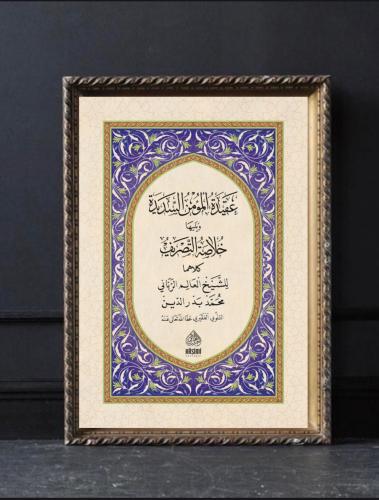 عَقِيدَةُ الْمُؤْمِنِ السَّدِيدَةُ
وَيَلِيهَا
خُلَاصَةُ التَّصْرِيفِ
كلاهما
لِلشَّيْخِ الْعَالِمِ الرَّبَّانِي
مُحَمَّد بَدْرِ الدِّين
التلوي عفا الله تعالى عنه
HAŞİMİ